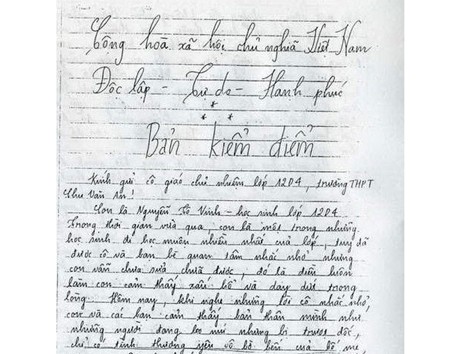 Cộng hoà xã hội chủ nghĩa Việt Nam
Độc lập - Tự do - Hạnh phúc
* * *
Bản kiểm điểm
Kính gửi cô giáo chủ nhiệm lớp 12D4, trường THPT
Chu Văn An!
Con là Nguyễn Tô Vinh - học sinh lớp 12D4
Trong thời gian vừa qua, con là một trong những
học sinh đi học muộn nhiều nhất của lớp, tuy đã
được cô và bạn bè quan tâm nhắc nhở nhưng
con vẫn chưa sửa chữa được, đó là điều luôn
làm con cảm thấy xấu hổ và day dứt trong
lòng. Hôm nay, khi nghe những lời cô nhắc nhở,
con và các bạn cảm thấy bản thân mình như
những người đang bơ vơ những bị trượt dốc,
chỉ có tình thương yêu vô bờ bến của bố mẹ,